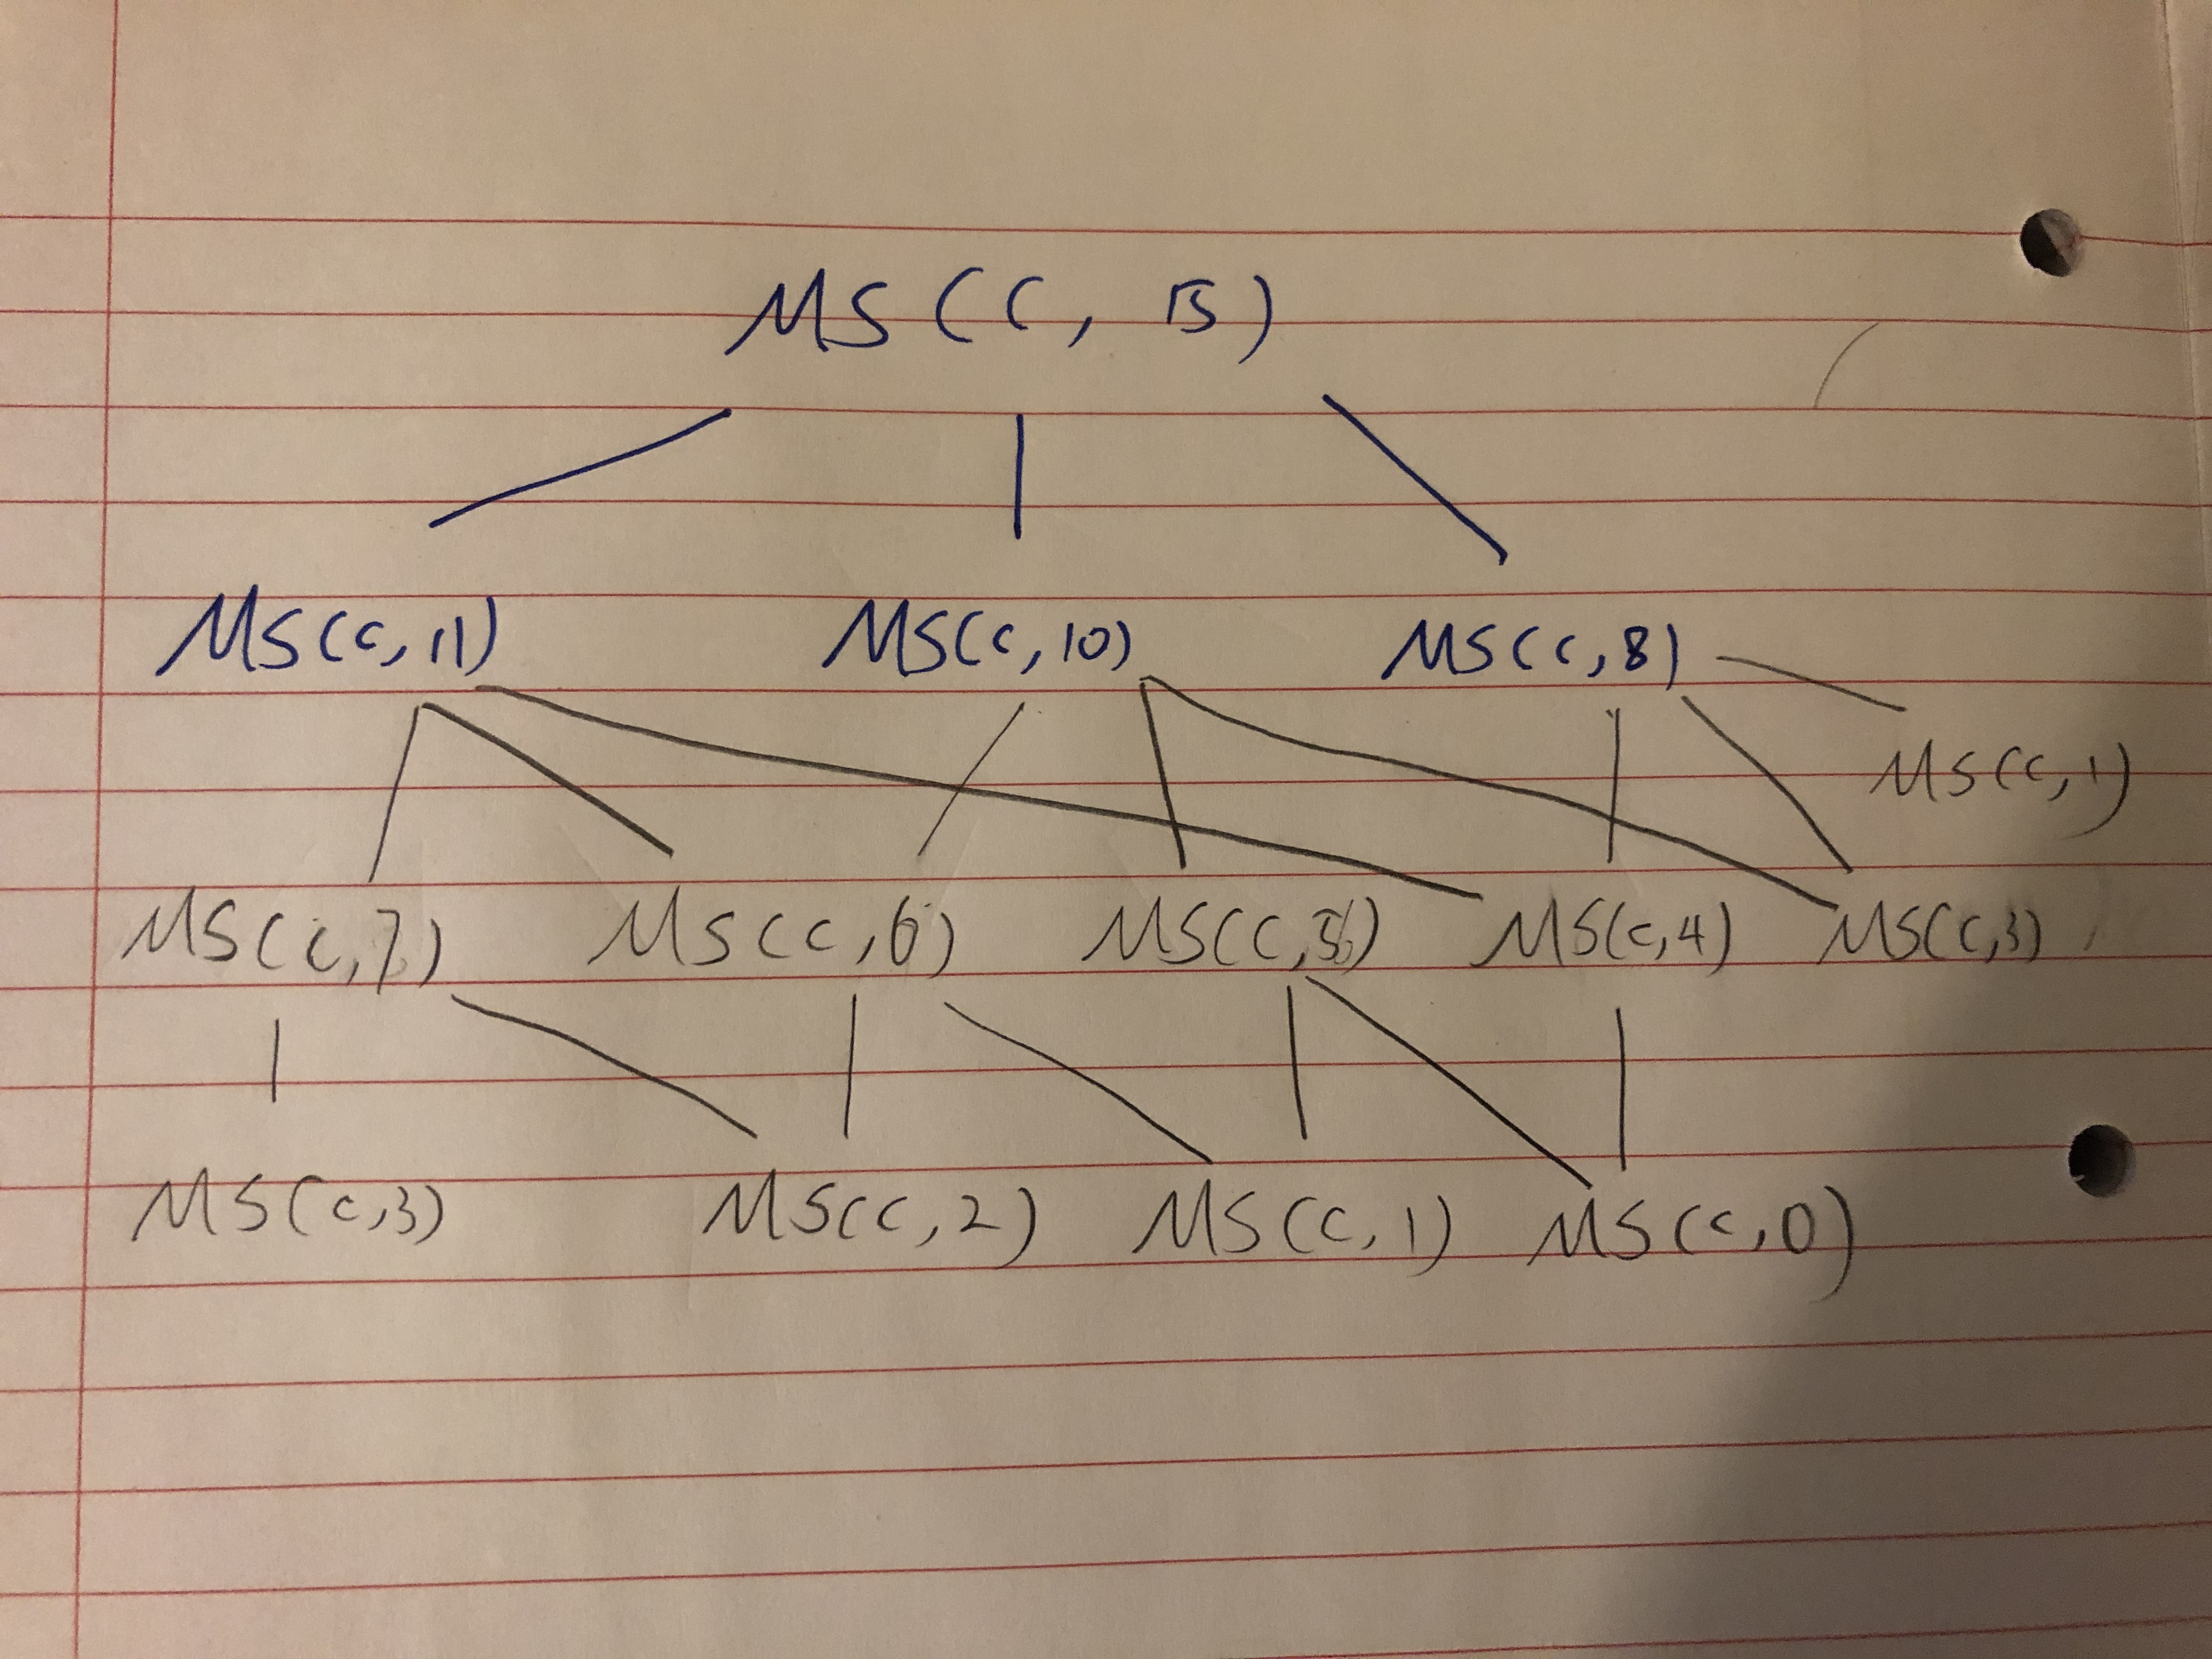 MS(c, 15)
MS(c, 11) MS(c, 10) MS(c, 8)
MS(c, 1)
MS(c, 7) MS(c, 6) MS(c, 4) MS(c, 3)
MS(c, 3) MS(c, 2) MS(c, 1) MS(c, 0)